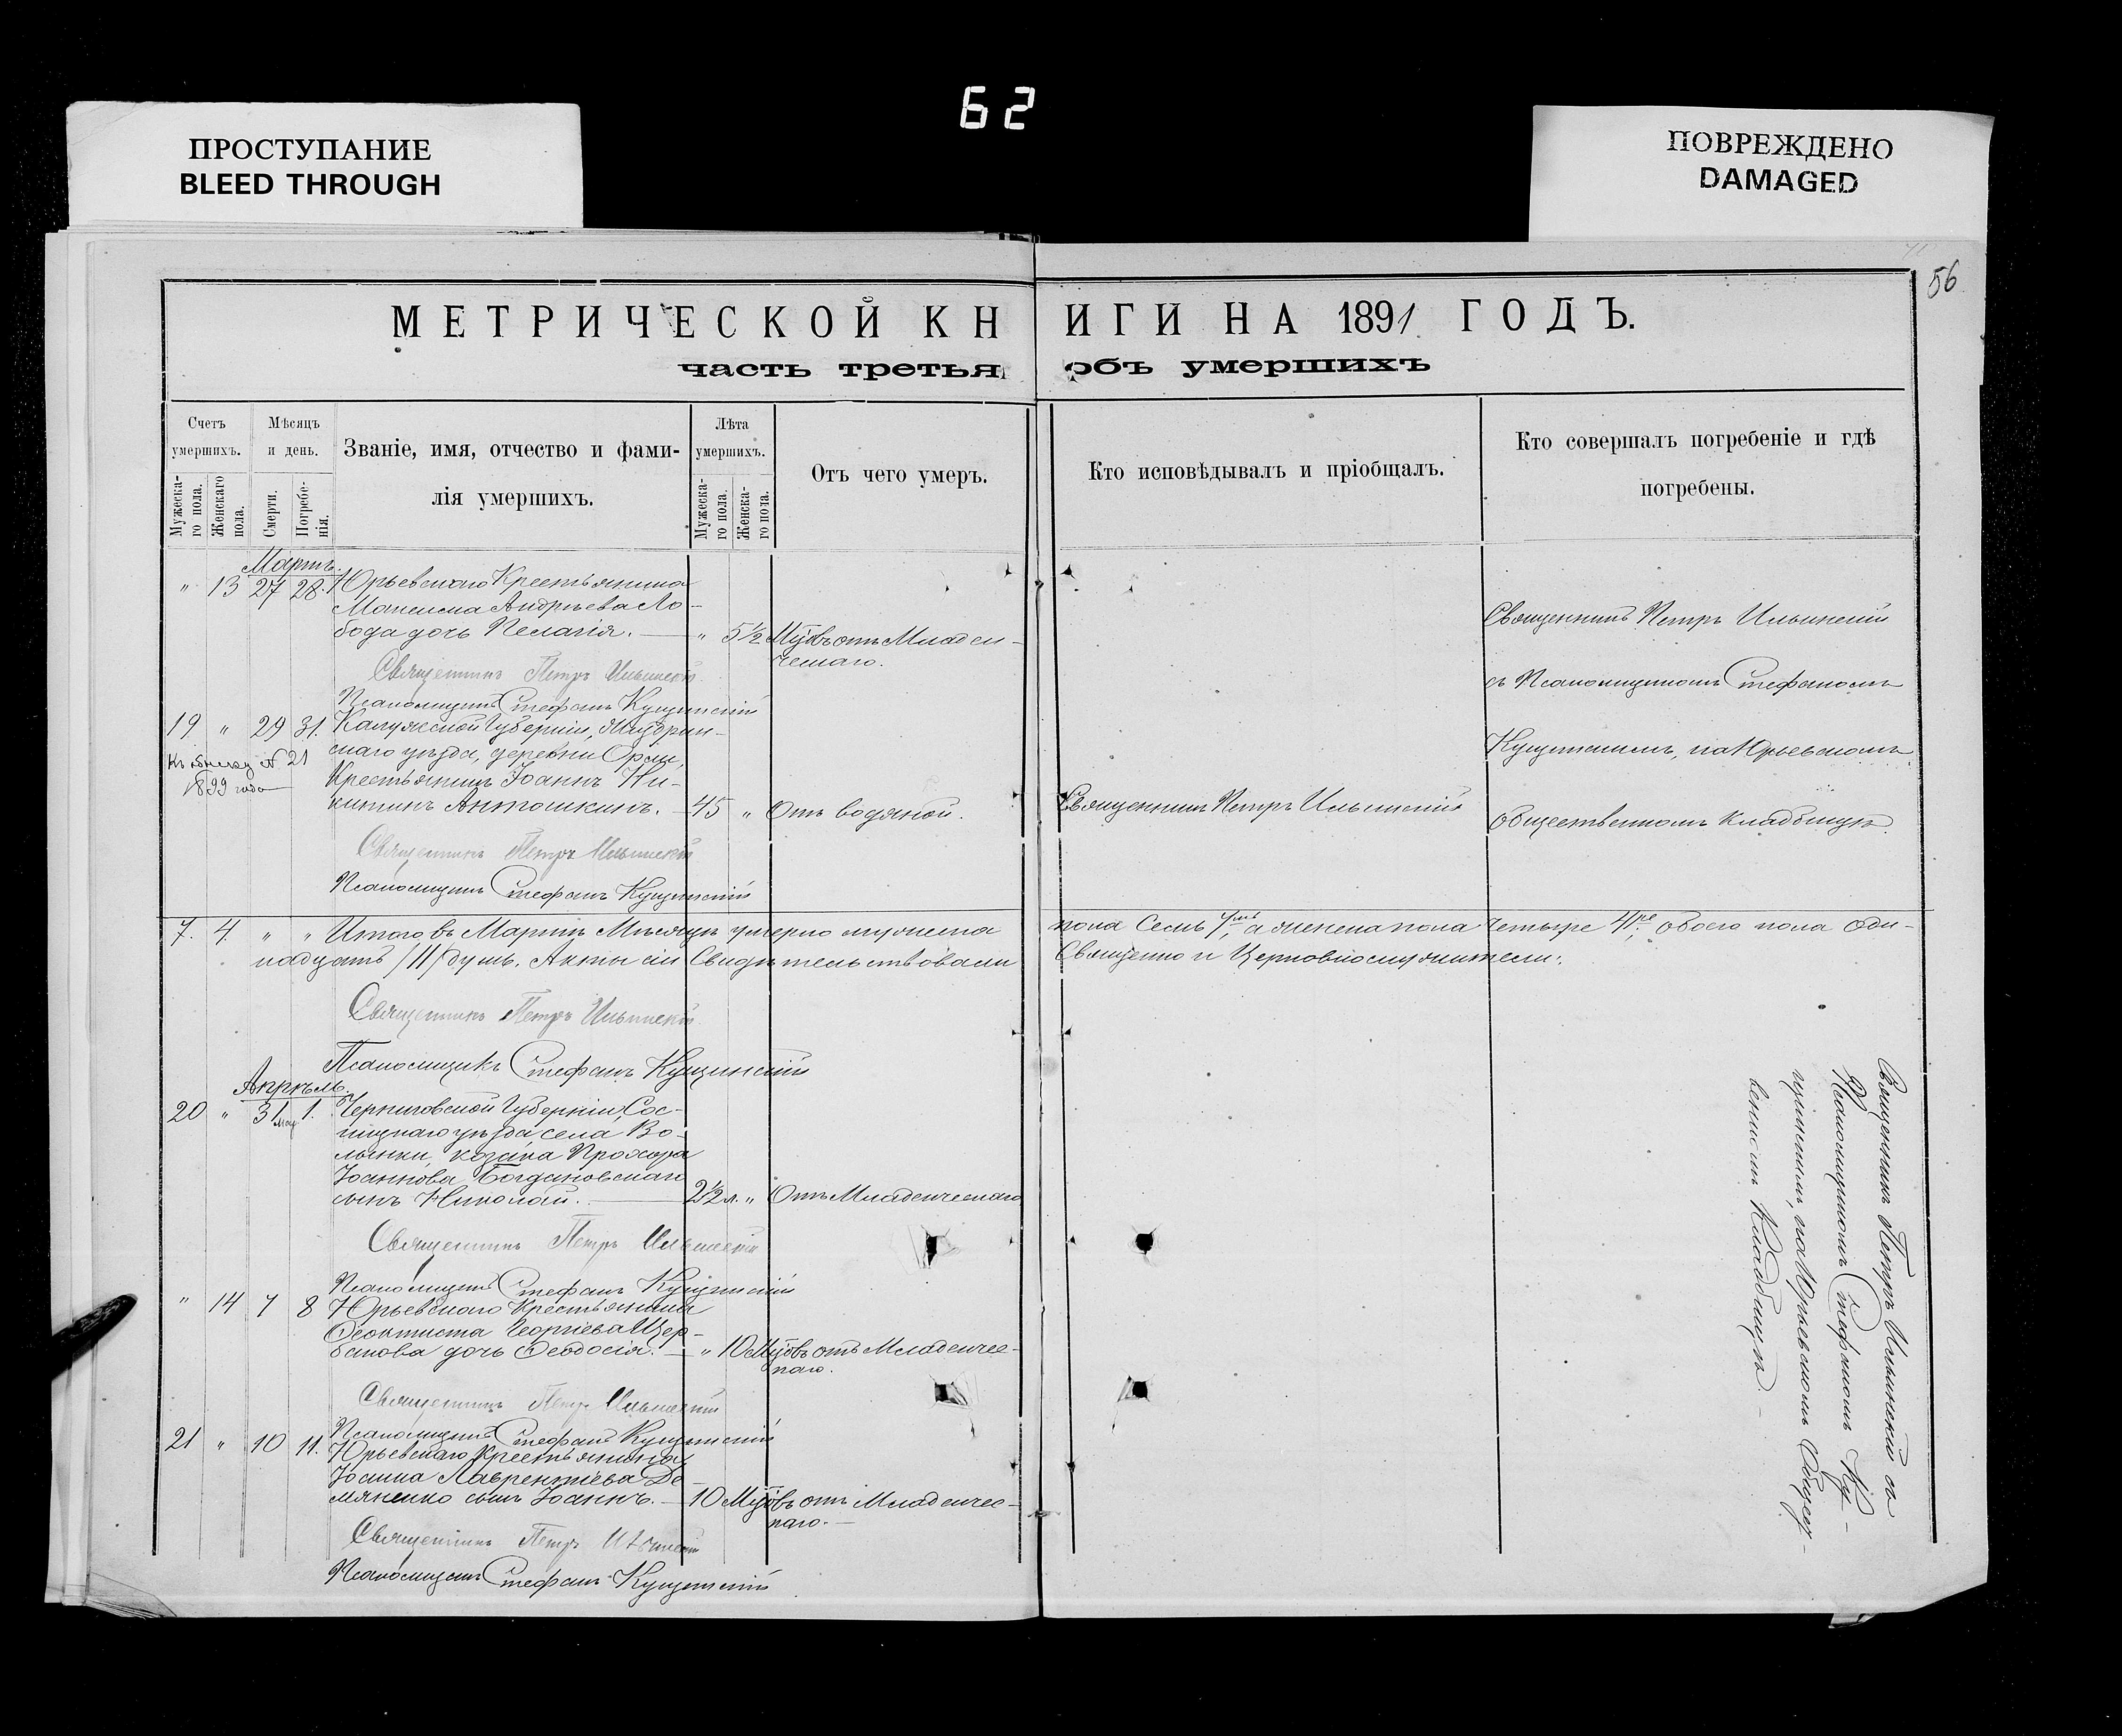 62
ПРОСТУПАНИЕ
BLEED THROUGH
ПОВРЕЖДЕНО
DAMAGED
56
МЕТРИЧЕСКОЙ КНИГИ НА 1891 ГОДЪ.
часть третья объ умершихъ
Счетъ умершихъ.
Мужеска-
го пола.
Женскаго
пола.
Мѣсяцъ
и день.
Смерти.
Погребе-
нія.
Званіе, имя, отчество и фами-
лія умершихъ.
Лѣта
умершихъ.
Мужеска-
го пола.
Женска-
го пола.
Отъ чего умеръ.
Кто исповѣдывалъ и пріобщалъ.
Кто совершалъ погребеніе и гдѣ
погребены.
Мартъ.
" 13 27 28. Юрьевскаго Крестьянина
Максима Андрѣева Ло-
бода дочь Пелагія. — " 5½ Мѣс. отъ Младен-
ческаго.
Священникъ Петръ Ильинскій
съ Псаломщикомъ Стефаномъ
Кущинскимъ, на Юрьевскомъ
общественномъ кладбищѣ.
Священникъ Петръ Ильинскій
Псаломщикъ Стефанъ Кущинскій
19 " 29 31. Калужской Губерніи,
скаго уѣзда, деревни
Крестьянинъ Іоаннъ Ни-
китинъ Антошкинъ. — 45 " Отъ водяной. Священникъ Петръ Ильинскій
№ 21
1899 года
Священникъ Петръ Ильинскій
Псаломщикъ Стефанъ Кущинскій
7. 4. " " Итого въ Мартѣ Мѣсяцѣ умерло мужеска пола Семь 7мь, а женска пола Четыре 4ре, обоего пола Оди-
надцать /11/ душъ. Акты сіи Свидѣтельствовали Священно и Церковнослужители:
Священникъ Петръ Ильинскій
Псаломщикъ Стефанъ Кущинскій
Апрѣль.
20 " 31 1. Черниговской Губерніи, Сос-
ницкаго уѣзда села Во-
лынки, козака Прохора
Іоаннова Богдановскаго
сынъ Николай. — 2½ л. " Отъ Младенческаго
Священникъ Петръ Ильинскій
Псаломщикъ Стефанъ Кущинскій
" 14 7 8 Юрьевскаго Крестьянина
Феоктиста Георгіева Щер-
бакова дочь Феодосія. — " 10 Мѣс. отъ Младенчес-
каго.
Священникъ Петръ Ильинскій
Псаломщикъ Стефанъ Кущинскій
21 " 10 11. Юрьевскаго Крестьянина
Іоанна Лаврентіева Де-
мяненко сынъ Іоаннъ. — 10 Мѣс. отъ Младенчес-
каго. —
Священникъ Петръ Ильинскій
Псаломщикъ Стефанъ Кущинскій
Священникъ Петръ Ильинскій съ
Псаломщикомъ Стефаномъ Ку-
щинскимъ, на Юрьевскомъ Общест-
венномъ Кладбищѣ. —